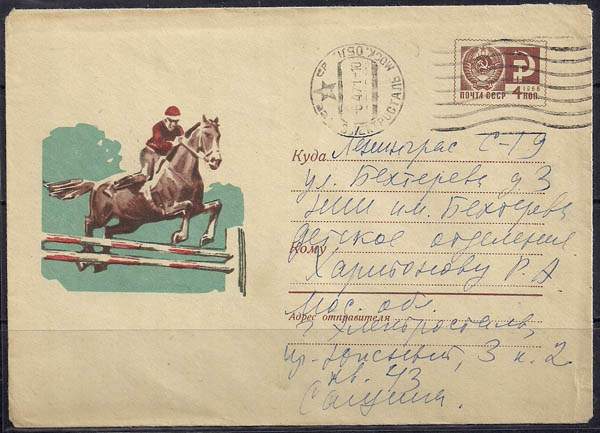 МОСК. ОБЛ.
ПОЧТА СССР 4 КОП.
1966
Куда Ленинград С-19
ул. Бехтерева д 3
НИИ им. Бехтерева
детское отделение
Кому
Харитонову Р. А
Мос. обл.
Адрес отправителя
г Электросталь,
3 к. 2
кв. 43